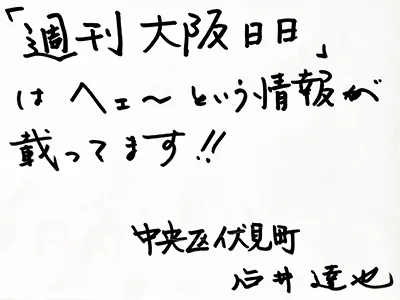 「週刊大阪日日」
は ヘェ～という情報が
載ってます!!
中央区伏見町
石井達也